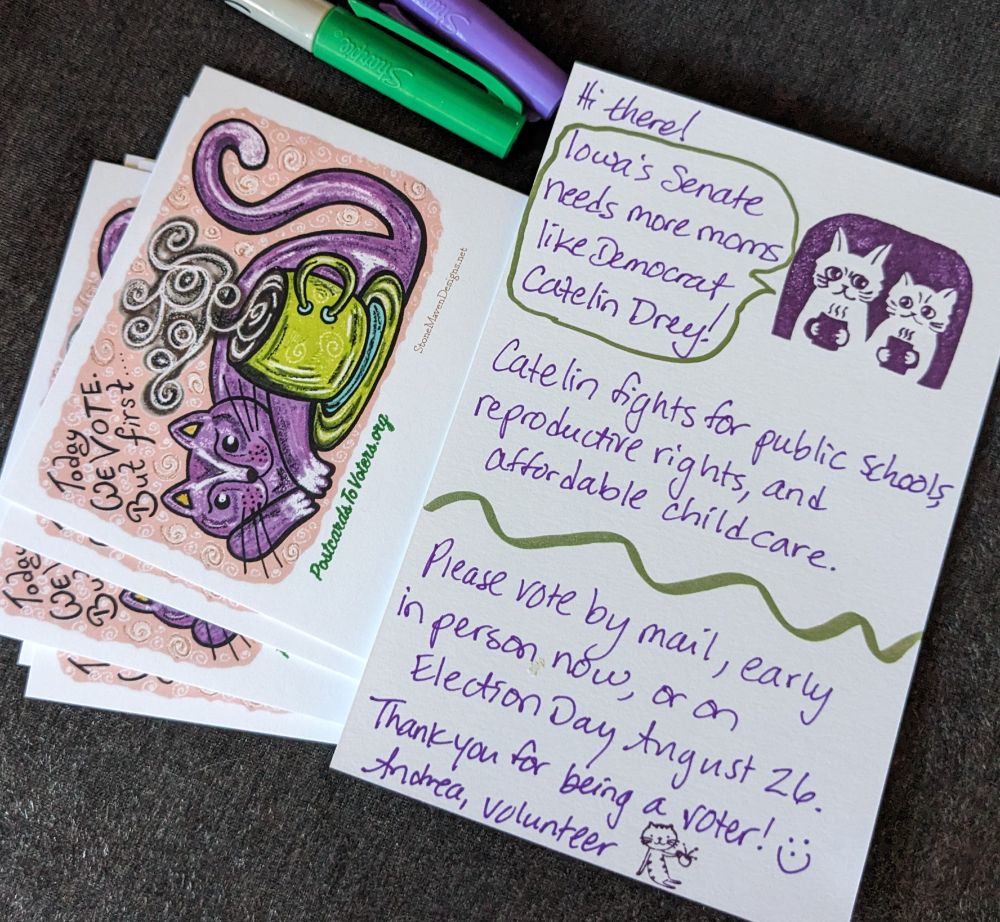 Sharpie
Hi there!
Iowa's Senate
needs more moms
like Democrat
Catelin Drey!
Catelin fights for public schools,
reproductive rights, and
affordable childcare.
Please vote by mail, early
in person now, or on
Election Day August 26.
Thank you for being a voter!
Andrea, volunteer
Today
WE VOTE.
But first...
StoneMavenDesigns.net
PostcardsToVoters.org
Today
WE V
But